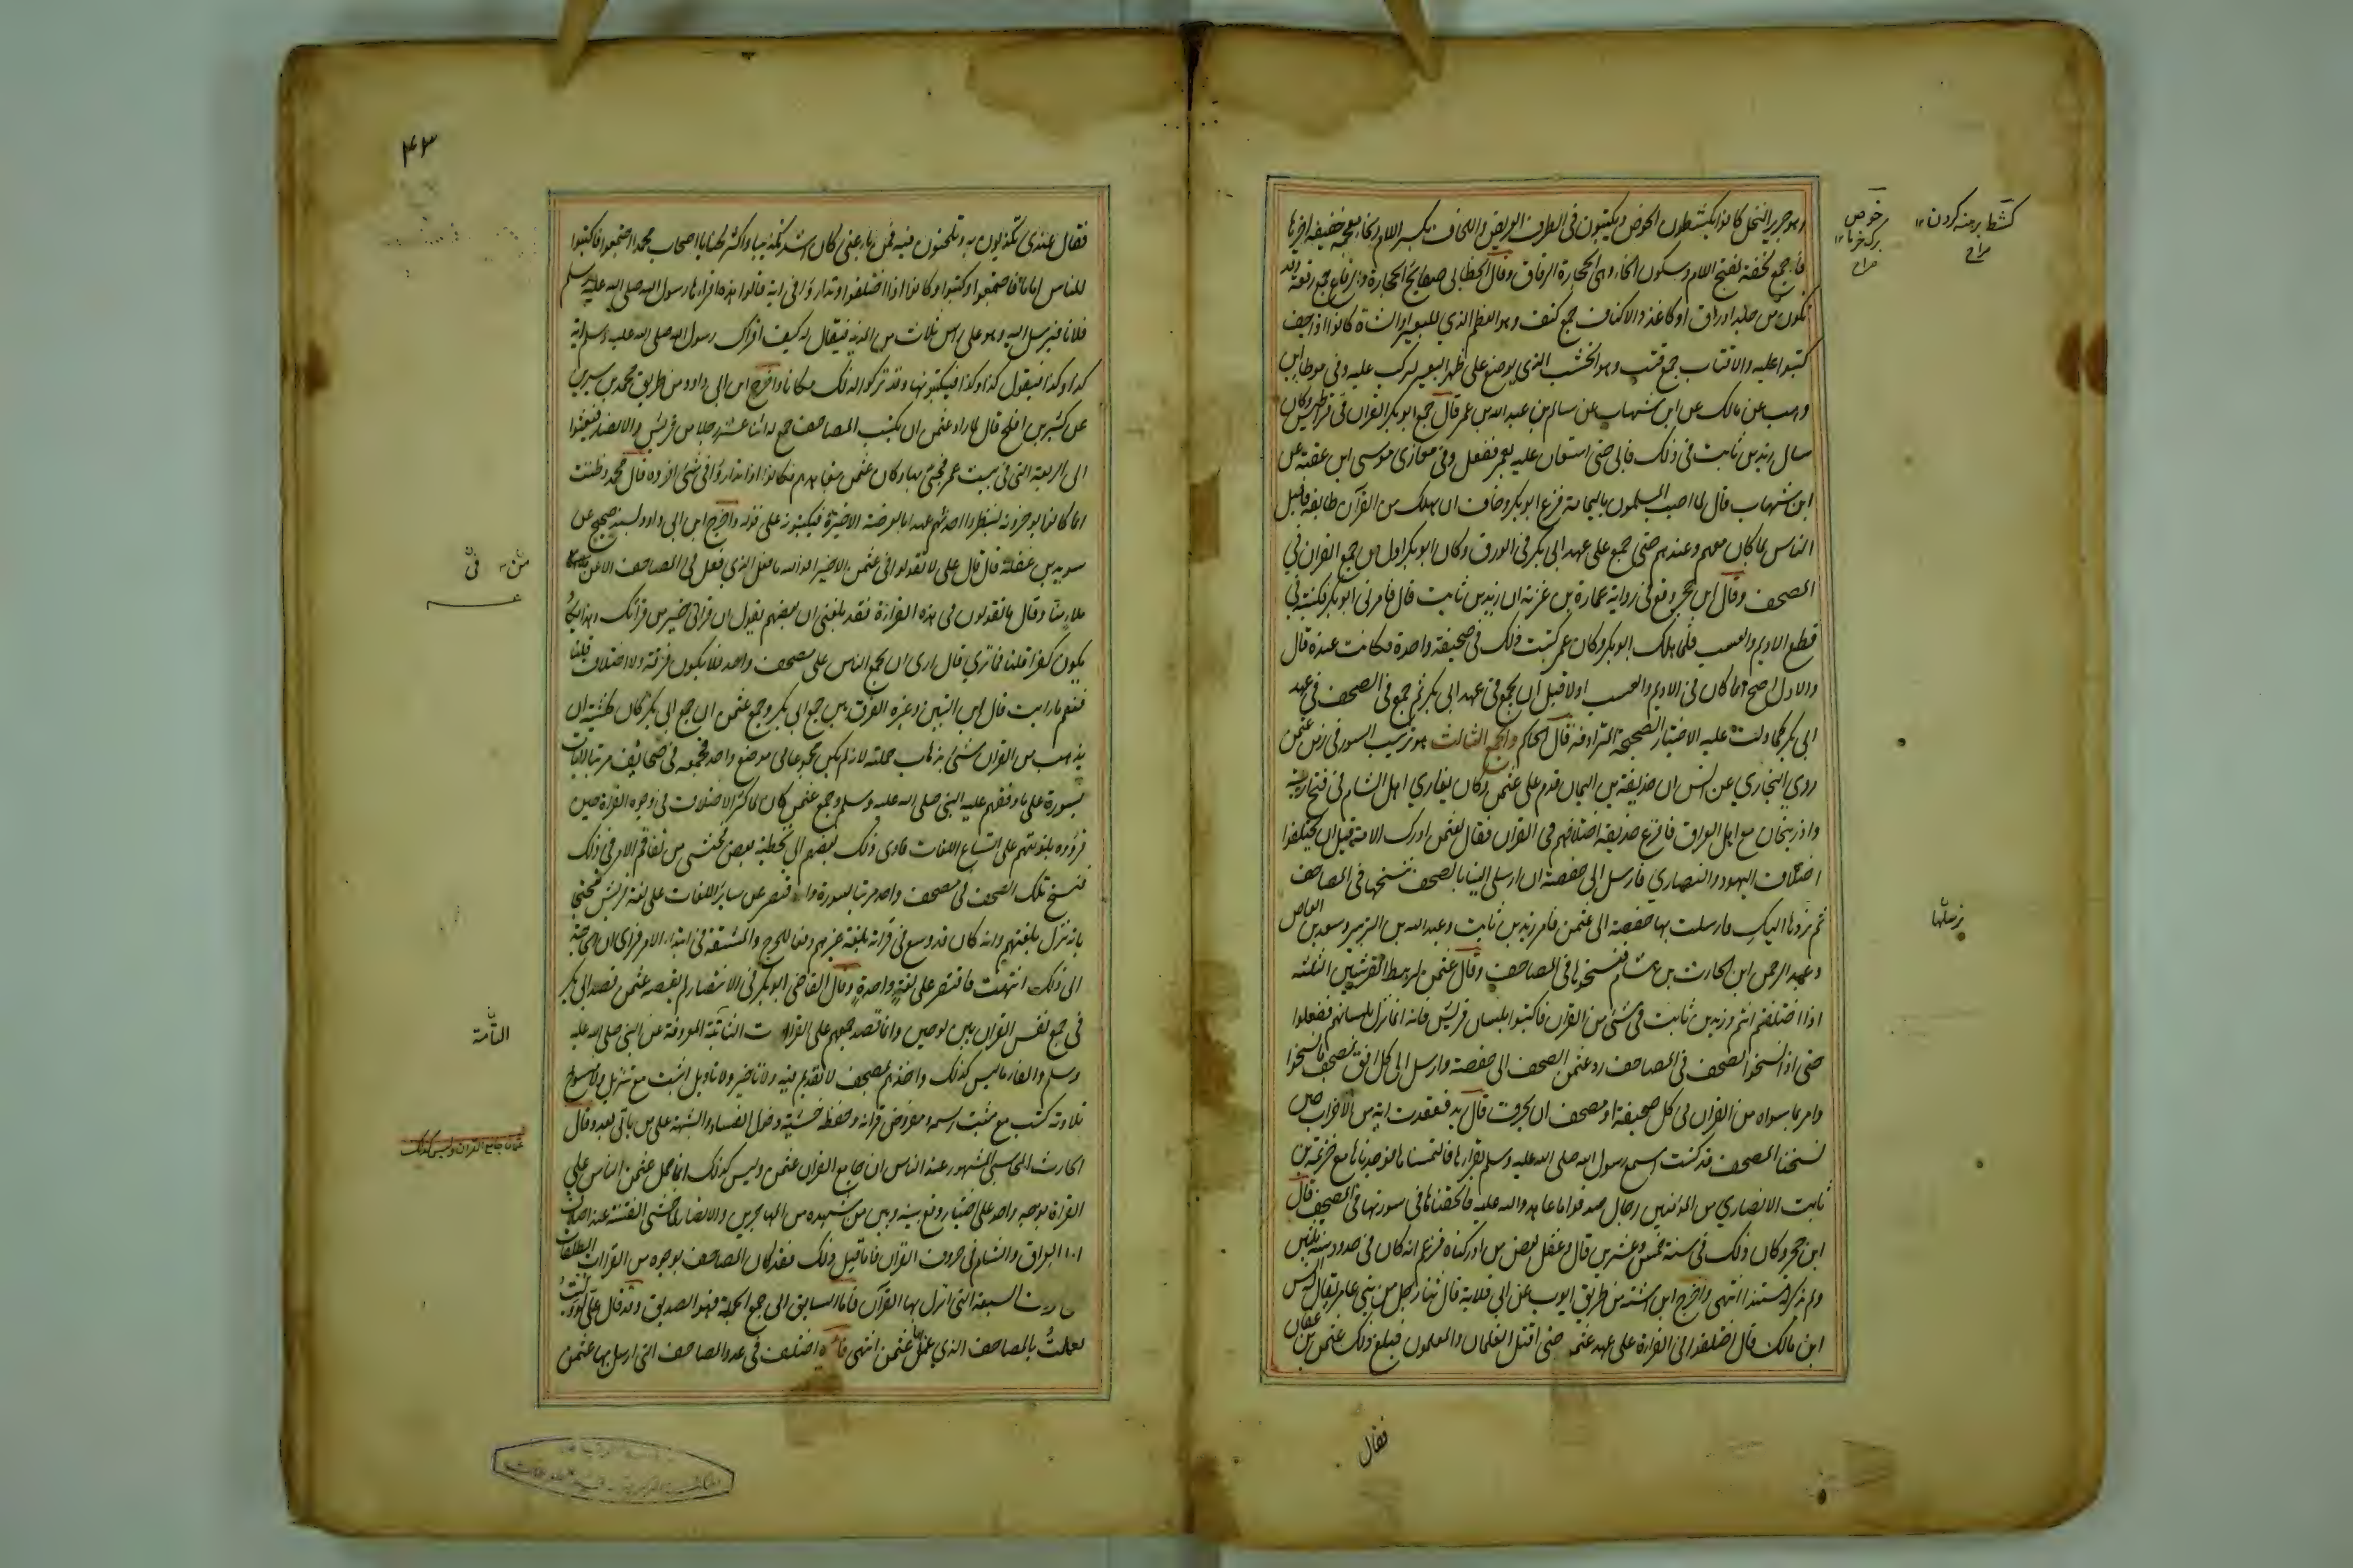 وهو جريد النخل كانوا يكشطون الخوص ويكتبون في الطرف العريض واللخاف بكسر اللام وبخاء معجمة خفيفة اخرها
فاء جمع لخفة بفتح اللام وسكون الخاء وهي الحجارة الرقاق وقال الخطابي صفايح الحجارة والرقاع جمع رقعة وقد
تكون من جلد او رق او كاغذ والاكتاف جمع كتف وهو العظم الذي للبعير او الشاة كانوا اذا جف
كتبوا عليه والاقتاب جمع قتب وهو الخشب الذي يوضع على ظهر البعير ليركب عليه وفي موطا ابن
وهب عن مالك عن ابن شهاب عن سالم بن عبد الله بن عمر قال جمع ابو بكر القران في قراطيس وكان
سال زيد بن ثابت في ذلك فابى حتى استعان عليه بعمر ففعل وفي مغازي موسى ابن عقبة عن
ابن شهاب قال لما اصيب المسلمون باليمامة فزع ابو بكر وخاف ان يهلك من القرآن طايفة فاقبل
الناس بما كان معهم وعندهم حتى جمع على عهد ابي بكر في الورق وكان ابو بكر اول من جمع القران في
المصحف وقال ابن حجر وقع في رواية عمارة بن غزية ان زيد بن ثابت قال فامرني ابو بكر فكتبته في
قطع الاديم والعسب فلما هلك ابو بكر وكان عمر كتبت ذلك في صحيفة واحدة فكانت عنده قال
والاول اصح انما كان في الاديم والعسب اولا قبل ان يجمع في عهد ابي بكر ثم جمع في الصحف في عهد
ابي بكر كما دلت عليه الاخبار الصحيحة المترادفة قال الحاكم والجمع الثالث هو ترتيب السور في زمن عثمن
روى البخاري عن انس ان حذيفة بن اليمان قدم على عثمن وكان يغازي اهل الشام في فتح ارمينية
واذربيجان مع اهل العراق فافزع حذيفة اختلافهم في القران فقال لعثمن ادرك الامة قبل ان يختلفوا
اختلاف اليهود والنصاري فارسل الى حفصة ان ارسلي الينا بالصحف ننسخها في المصاحف
ثم نردها اليك فارسلت بها حفصة الى عثمن فامر زيد بن ثابت وعبد الله بن الزبير وسعيد بن العاص
وعبد الرحمن ابن الحارث بن هشام فنسخوها في المصاحف وقال عثمن للرهط القرشيين الثلثة
اذا اختلفتم انتم وزيد بن ثابت في شئ من القرآن فاكتبوا بلسان قريش فانه انما نزل بلسانهم ففعلوا
حتى اذا نسخوا الصحف في المصاحف رد عثمن الصحف الى حفصة وارسل الى كل افق بمصحف مما نسخوا
وامر بما سواه من القرآن في كل صحيفة او مصحف ان يحرق قال زيد ففقدت اية من الاحزاب حين
نسخنا المصحف قد كنت اسمع رسول الله صلى الله عليه وسلم يقرا بها فالتمسناها فوجدناها مع خزيمة بن
ثابت الانصاري من المؤمنين رجال صدقوا ما عاهدوا الله عليه فالحقناها في سورتها في المصحف قال
ابن حجر وكان ذلك في سنة خمس وعشرين قال وغفل بعض من ادركناه فزعم انه كان في حدود سنة ثلثين
ولم يذكر له مستندا انتهى واخرج ابن اشته من طريق ايوب عن ابي قلابة قال ثنا رجل من بني عامر يقال له انس
ابن مالك قال اختلفوا في القراءة على عهد عثمن حتى اقتتل الغلمان والمعلمون فبلغ ذلك عثمن بن عفان
كشط برهنه كردن ١٢
صراح
خوص
برك خرما ١٢
صراح
فقال
٤٣
فقال عندي تكذبون به وتلحنون فيه فمن ناء عني كان اشد تكذيبا واكثر لحنا يا اصحاب محمد اجتمعوا فاكتبوا
للناس اماما فاجتمعوا وكتبوا وكانوا اذا اختلفوا وتداروا في اية قالوا هذه اقراها رسول الله صلى الله عليه وسلم
فلانا فيرسل اليه وهو على راس ثلاث من المدينة فيقال له كيف اقراك رسول الله صلى الله عليه وسلم اية
كذا وكذا فيقول كذا وكذا فيكتبونها وقد تركوا لذلك مكانا واخرج ابن ابي داود من طريق محمد بن سيرين
عن كثير بن افلح قال لما اراد عثمن ان يكتب المصاحف جمع له اثنا عشر رجلا من قريش والانصار فبعثوا
الى الربعة التي في بيت عمر فجئ بها وكان عثمن يتعاهدهم فكانوا اذا تداروا في شئ اخروه قال محمد فظننت
انما كانوا يوخرونه لينظروا احدثهم عهدا بالعرضة الاخيرة فيكتبونه على قوله واخرج ابن ابي داود بسند صحيح عن
سويد بن غفلة قال قال علي لا تقولوا في عثمن الا خيرا فوالله ما فعل الذي فعل في المصاحف الا عن
ملاء منا وقال ما تقولون في هذه القراءة فقد بلغني ان بعضهم يقول ان قراتي خير من قراتك وهذا يكاد
يكون كفرا قلنا فما ترى قال ارى ان يجمع الناس على مصحف واحد فلا يكون فرقة ولا اختلاف قلنا
فنعم ما رايت قال ابن التين وغيره الفرق بين جمع ابي بكر وجمع عثمن ان جمع ابي بكر كان لخشية ان
يذهب من القران شئ بذهاب حملته لانه لم يكن مجموعا في موضع واحد فجمعه في صحايف مرتبا لايات
سورة على ما وقفهم عليه النبي صلى الله عليه وسلم وجمع عثمن كان لما كثر الاختلاف في وجوه القراءة حين
قرؤوه بلغتهم على اتساع اللغات فادى ذلك بعضهم الى تخطية بعض فخشى من تفاقم الامر في ذلك
فنسخ تلك الصحف في مصحف واحد مرتبا لسوره واقتصر عن سائر اللغات على لغة قريش محتجا
بانه نزل بلغتهم وانه كان قد وسع في قراته بلغة غيرهم دفعا للحرج والمشقة في ابتداء الامر فراى ان الحاجة
الى ذلك انتهت فاقتصر على لغة واحدة وقال القاضي ابو بكر في الانتصار لم يقصد عثمن قصد ابي بكر
في جمع نفس القران بين لوحين وانما قصد جمعهم على القراات الثابتة المعروفة عن النبي صلى الله عليه
وسلم والغاء ما ليس كذلك واخذهم بمصحف لا تقديم فيه ولا تاخير ولا تاويل اثبت مع تنزيل ولا منسوخ
تلاوته كتب مع مثبت رسمه ومفروض قراته وحفظه خشية دخول الفساد والشبهة على من ياتي بعد وقال
الحارث المحاسبي المشهور عند الناس ان جامع القران عثمن وليس كذلك انما حمل عثمن الناس على
القراءة بوجه واحد على اختيار وقع بينه وبين من شهده من المهاجرين والانصار لما خشي الفتنة عند اختلاف
اهل العراق والشام في حروف القرآن فاما قبل ذلك فقد كان المصاحف بوجوه من القراات المطلقات
على الحروف السبعة التي انزل بها القرآن فاما السابق الى جمع الجملة فهو الصديق وقد قال علي لو وليت
لعملت بالمصاحف الذي عمل بها عثمن انتهى فائدة اختلف في عدد المصاحف التي ارسل بها عثمن
في
التامة
عثمان جامع القران وليس كذلك